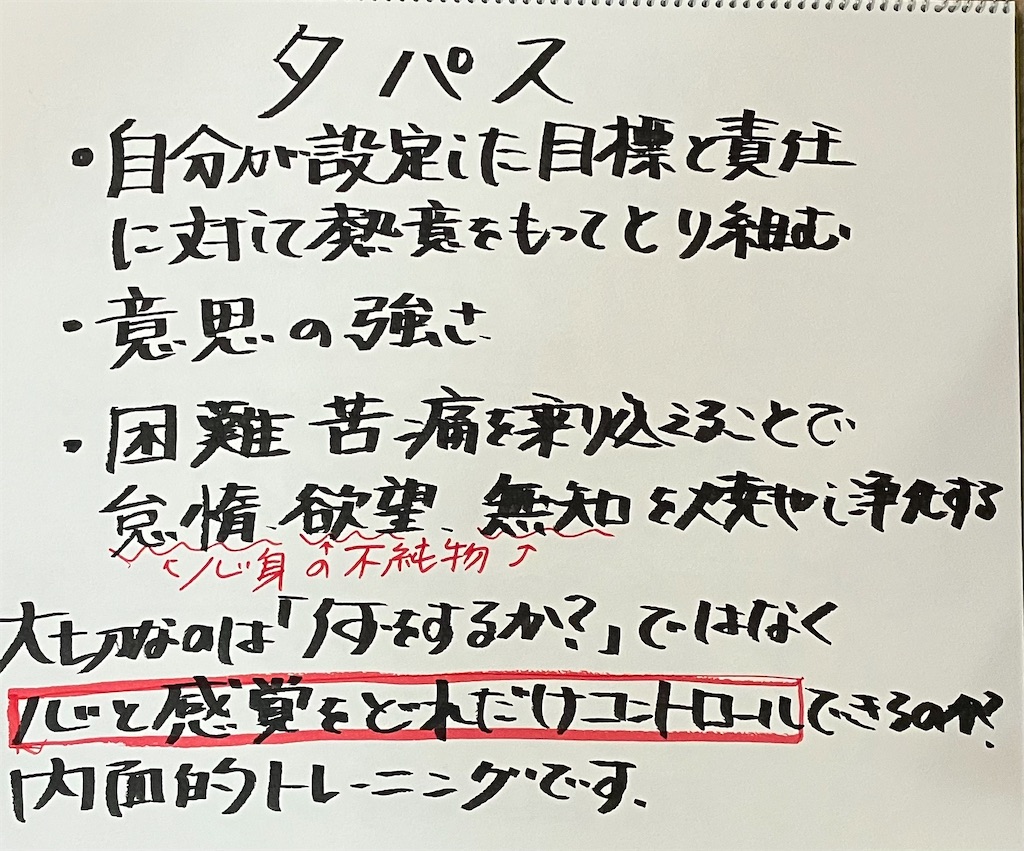 タパス
・自分が設定した目標と責任
に対して熱意をもってとり組む
・意思の強さ
・困難 苦痛を乗り込えることで
怠惰、欲望、無知を焼やし浄化する
↑心身の不純物↑
大切なのは「何をするか?」ではなく
心と感覚をどれだけコントロールできるのか?
内面的トレーニングです.